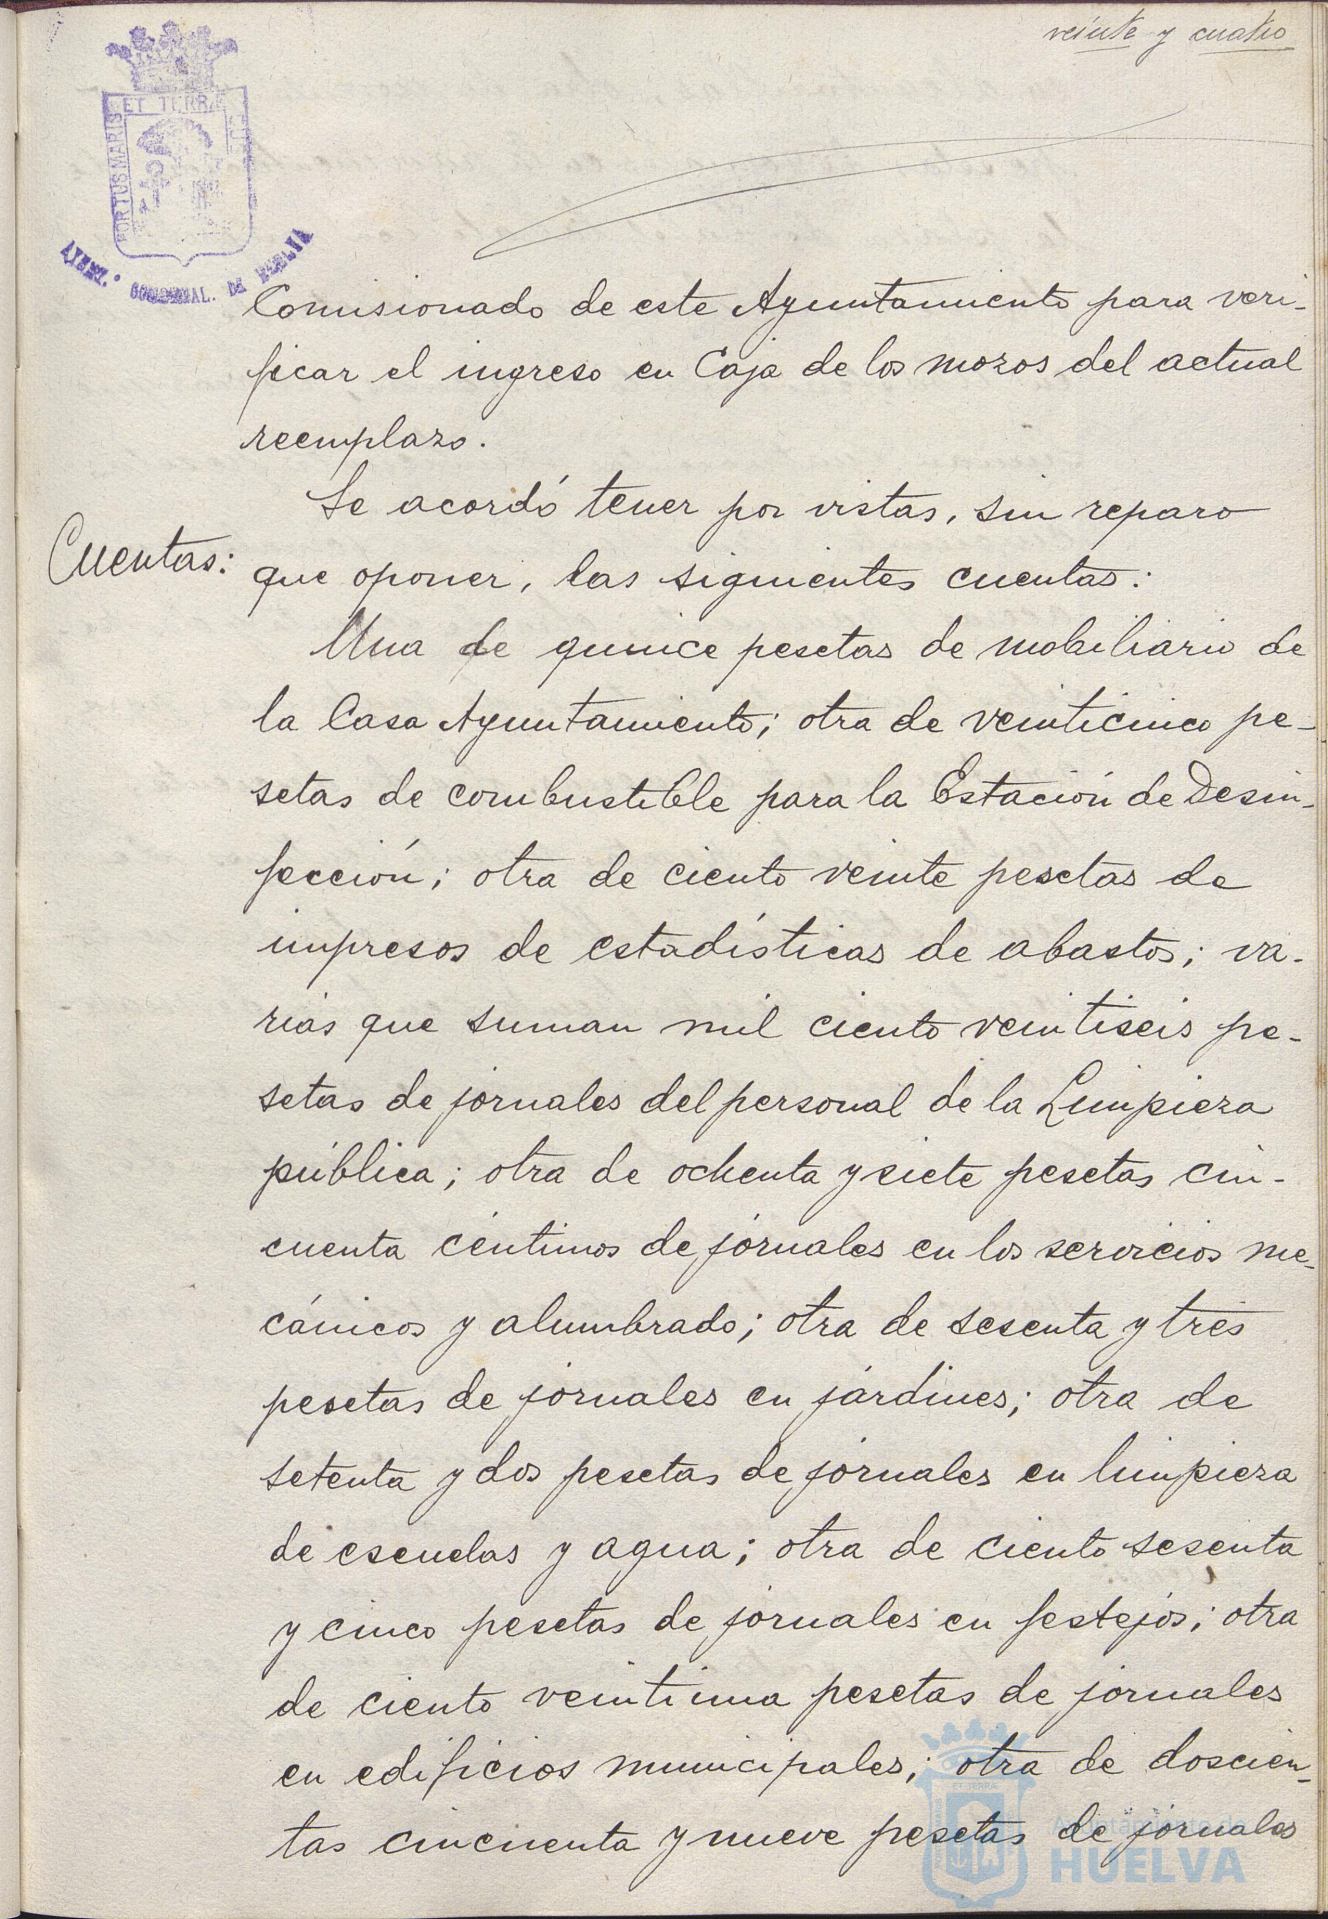 veinte y cuatro
PORTUS MARIS ET TERRÆ
AYUNT.º DE HUELVA
Comisionado de este Ayuntamiento para veri-
ficar el ingreso en Caja de los mozos del actual
reemplazo.
Se acordó tener por vistas, sin reparo
Cuentas:
que oponer, las siguientes cuentas:
Una de quince pesetas de mobiliario de
la Casa Ayuntamiento; otra de veinticinco pe-
setas de combustible para la Estación de Desin-
fección; otra de ciento veinte pesetas de
impresos de estadísticas de abastos; va-
rias que suman mil ciento veintiseis pe-
setas de jornales del personal de la Limpieza
pública; otra de ochenta y siete pesetas cin-
cuenta céntimos de jornales en los servicios me-
cánicos y alumbrado; otra de sesenta y tres
pesetas de jornales en jardines; otra de
setenta y dos pesetas de jornales en limpieza
de escuelas y agua; otra de ciento sesenta
y cinco pesetas de jornales en festejos; otra
de ciento veintiuna pesetas de jornales
en edificios municipales; otra de doscien-
tas cincuenta y nueve pesetas de jornales
Ayuntamiento de
HUELVA